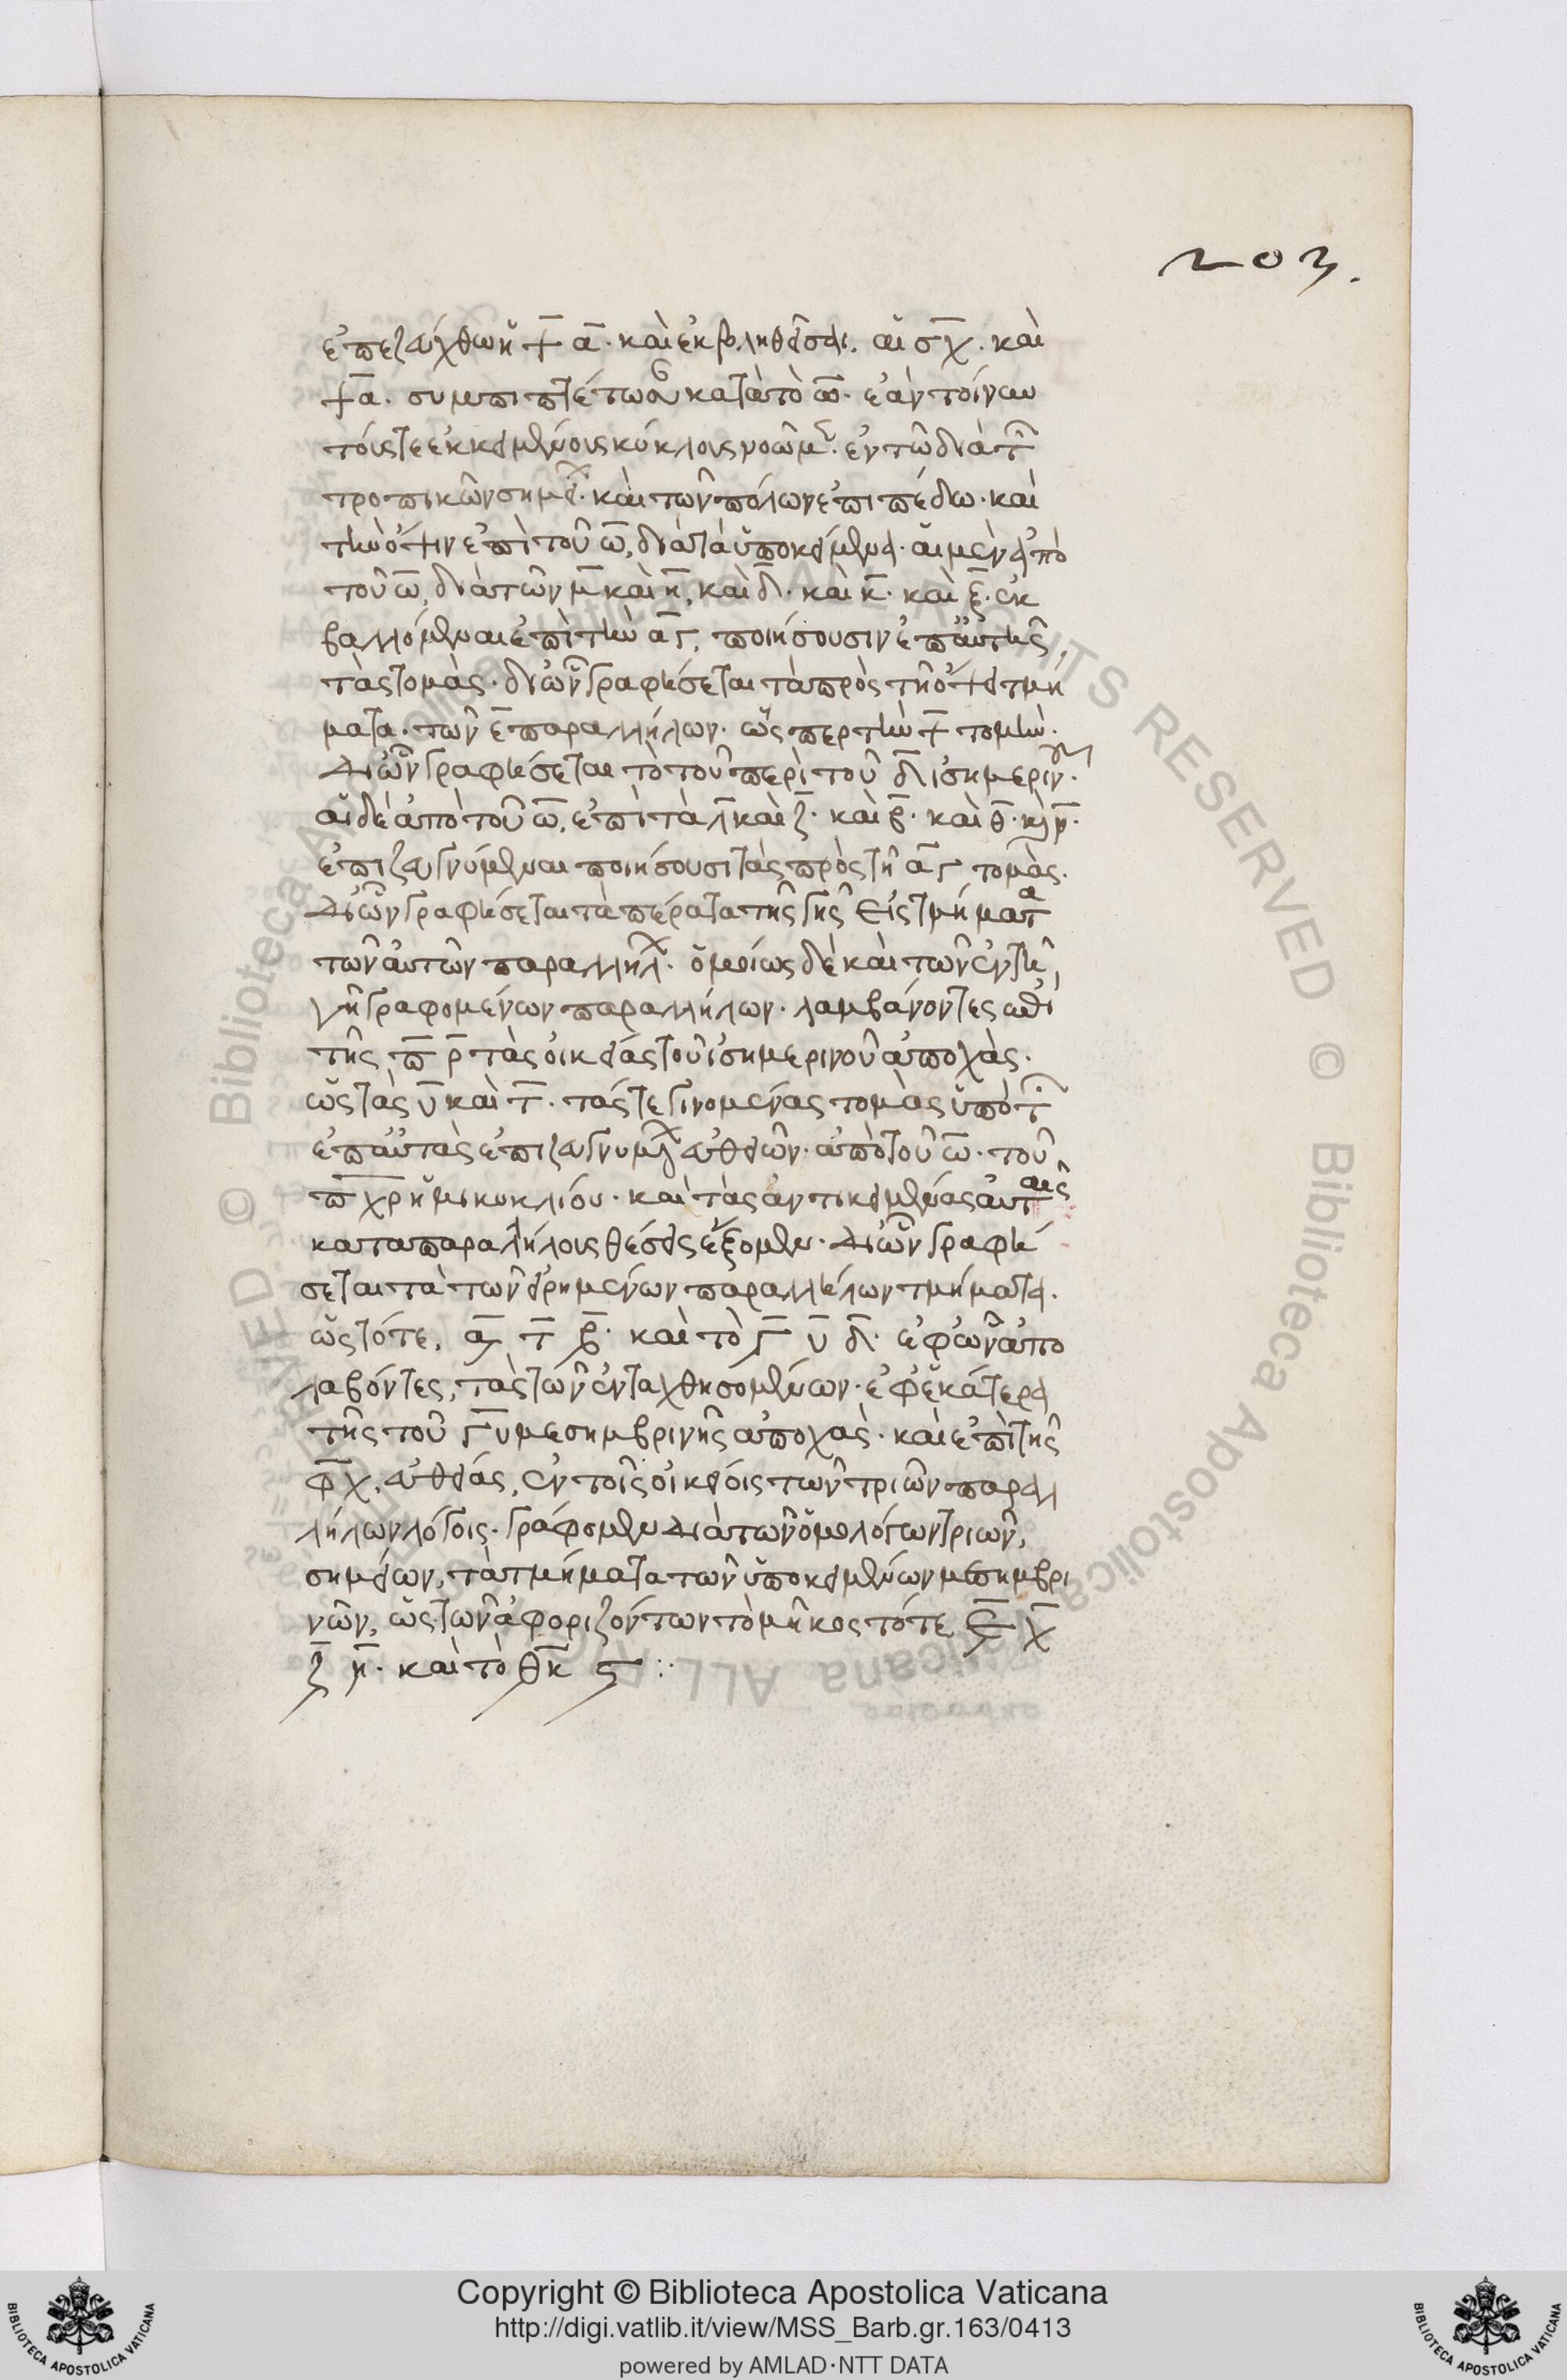 203.
ἐπεζεύχθω ἡ ϯ̅ α̅. καὶ ἐκβληθεῖσαι, αἱ σ̅χ̅. καὶ
ϯ̅α̅. συμπιπτέτωσαν κατὰ τὸ ω̅. ἐὰν τοίνυν
τούς τε ἐκκειμένους κύκλους νοῶμεν. ἐν τῷ διὰ τῶν
τροπικῶν σημεί. καὶ τῶν πόλων ἐπιπέδω. καὶ
τὴν ὄψιν ἐπὶ τοῦ ω̅, διὰ τὰ ὑποκείμενα. αἱ μὲν ἀπὸ
τοῦ ω̅, διὰ τῶν μ̅ καὶ η̅, καὶ δ̅. καὶ κ̅. καὶ ξ̅. ἐκ
βαλλόμεναι ἐπὶ τὴν α̅γ̅, ποιήσουσιν ἐπ αὐτῆς,
τὰς τομάς. δι ὧν γραφήσεται τὰ πρὸς τῇ ὄψει τμή
ματα. τῶν ε̅ παραλλήλων. ὥσπερ τὴν ϯ̅ τομήν.
δι ὧν γραφήσεται τὸ τοῦ περὶ τοῦ δ̅ ἰσημεριν.
αἱ δὲ ἀπὸ τοῦ ω̅, ἐπὶ τὰ λ̅ καὶ ζ̅. καὶ β̅. καὶ θ̅. καὶ ρ̅.
ἐπιζευγνύμεναι ποιήσουσι τὰς πρὸς τῇ α̅γ̅ τομάς.
δι ὧν γραφήσεται τὰ πέρατα τῆς γῆς εἰς τμήματα
τῶν αὐτῶν παραλλήλ. ὁμοίως δὲ καὶ τῶν ἐν τῇ
γῇ γραφομένων παραλλήλων. λαμβάνοντες ἐπὶ
τῆς π̅ ρ̅ τὰς οἰκείας τοῦ ἰσημερινοῦ ἀποχάς.
ὡς τὰς υ̅ καὶ τ̅. τάς τε γινομένας τομὰς ὑπὸ τῶν
ἐπ αὐτὰς ἐπιζευγνυμέ εὐθειῶν. ἀπὸ τοῦ ω̅. τοῦ
π̅χ̅ρ̅ ἡμικυκλίου. καὶ τὰς ἀντικειμένας αὐταῖς
κατὰ παραλλήλους θέσεις ἕξομεν. δι ὧν γραφή
σεται τὰ τῶν εἰρημένων παραλλήλων τμήματα.
ὡς τότε, α̅ τ̅ β̅. καὶ τὸ γ̅ υ̅ δ̅. ἐφ ὧν ἀπο
λαβόντες, τὰς τῶν ἐνταχθησομένων. ἐφ ἑκάτερα
τῆς τοῦ γ̅υ̅ μεσημβρινῆς ἀποχάς. καὶ ἐπὶ τῆς
φ̅χ̅. εὐθείας, ἐν τοῖς οἰκείοις τῶν τριῶν παραλ
λήλων λόγοις. γράφομεν διὰ τῶν ὁμολόγων τριῶν,
σημείων, τὰ τμήματα τῶν ὑποκειμένων μεσημβρι
νῶν, ὡς τῶν ἀφοριζόντων τὸ μῆκος τότε ε̅ χ̅
ζ̅ η̅. καὶ τὸ θ̅κ̅ ς̅ :·
Copyright © Biblioteca Apostolica Vaticana
http://digi.vatlib.it/view/MSS_Barb.gr.163/0413
powered by AMLAD·NTT DATA